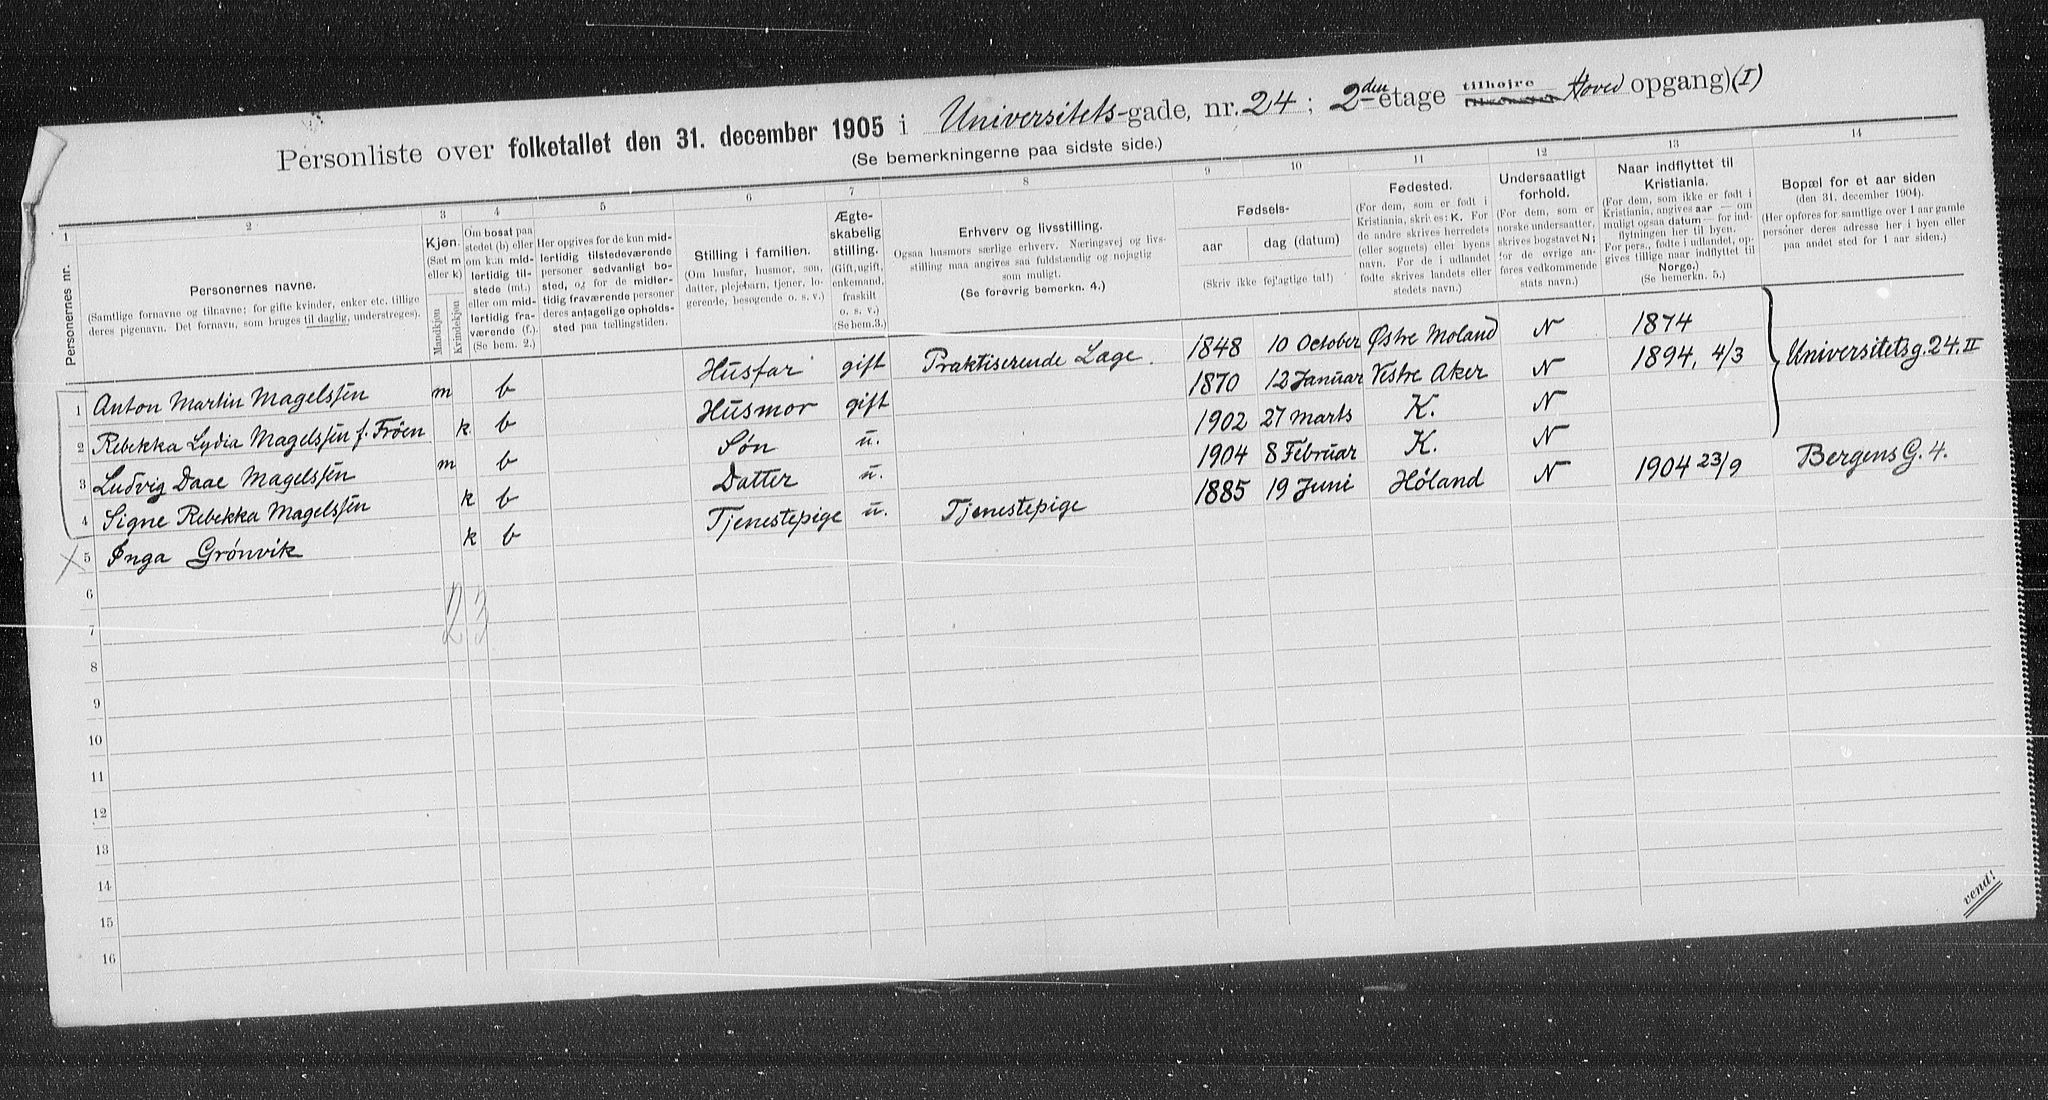 Personliste over folketallet den 31. december 1905 i Universitets-gade, nr. 24; 2den etage tilhøjre Hoved opgang) (I)
(Se bemerkningerne paa sidste side.)
1 2 3 4 5 6 7 8 9 10 11 12 13 14
Personernes nr.
Personernes navne.
(Samtlige fornavne og tilnavne; for gifte kvinder, enker etc. tillige
deres pigenavn. Det fornavn, som bruges til daglig, understreges).
Kjøn.
(Sæt m
eller k)
Mandkjøn
Kvindekjøn
Om bosat paa
stedet (b) eller
om kun mid-
lertidig til-
stede (mt.)
eller om mid-
lertidig fra-
værende (f.).
(Se bem. 2.)
Her opgives for de kun mid-
lertidig tilstedeværende
personer sedvanligt bo-
sted, og for de midler-
tidig fraværende personer
deres antagelige opholds-
sted paa tællingstiden.
Stilling i familien.
(Om husfar, husmor, søn,
datter, plejebarn, tjener, lo-
gerende, besøgende o. s. v.)
Ægte-
skabelig
stilling.
(Gift, ugift,
enkemand,
fraskilt
o. s. v.)
(Se bem. 3.)
Erhverv og livsstilling.
Ogsaa husmors særlige erhverv. Næringsvej og livs-
stilling maa angives saa fuldstændig og nøjagtig
som muligt.
(Se forøvrig bemerkn. 4.)
Fødsels-
aar
dag (datum)
(Skriv ikke fejagtige tal!)
Fødested.
(For dem, som er født i
Kristiania, skrives: K. For
de andre skrives herredets
(eller sognets) eller byens
navn. For de i udlandet
fødte skrives landets eller
stedets navn.)
Undersaatligt
forhold.
(For dem, som er
norske undersaatter,
skrives bogstavet N;
for de øvrige an-
føres vedkommende
stats navn.)
Naar indflyttet til
Kristiania.
(For dem, som ikke er født i
Kristiania, angives aar — om
muligt ogsaa datum — for ind-
flytningen her til byen.
For pers., fødte i udlandet, op-
gives tillige naar indflyttet til
Norge.)
(Se bemerkn. 5.)
Bopæl for et aar siden
(den 31. december 1904).
(Her opføres for samtlige over 1 aar gamle
personer deres adresse her i byen eller
paa andet sted for 1 aar siden.)
1 Anton Martin Magelssen m b Husfar gift Praktiserende Læge. 1848 10 October Østre Moland N 1874
2 Rebekka Lydia Magelssen f. Frøen k. b Husmor gift 1870 12 Januar Vestre Aker N 1894, 4/3 Universitetsg. 24. II
3 Ludvig Daae Magelssen m b Søn u. 1902 27 Marts K. N
4 Signe Rebekka Magelssen k b Datter u. 1904 8 Februar K. N
5 Inga Grønvik k b Tjenestepige u. Tjenestepige 1885 19 Juni Høland N 1904 23/9 Bergens G. 4.
6
2 3
7
8
9
10
11
12
13
14
15
16
vend!